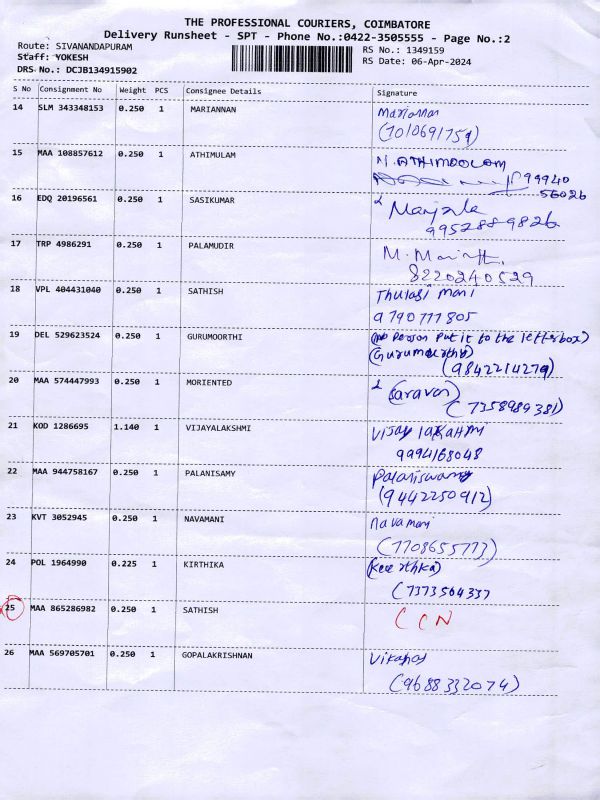 THE PROFESSIONAL COURIERS, COIMBATORE
Delivery Runsheet - SPT - Phone No.:0422-3505555 - Page No.:2
Route: SIVANANDAPURAM RS No.: 1349159
Staff: YOKESH RS Date: 06-Apr-2024
DRS No.: DCJB134915902
S No Consignment No Weight PCS Consignee Details Signature
14 SLM 343348153 0.250 1 MARIANNAN Mariannan
(7010691759)
15 MAA 108857612 0.250 1 ATHIMULAM N. ATHIMOOLAM
99940
56026
16 EDQ 20196561 0.250 1 SASIKUMAR Manjula
9952889826
17 TRP 4986291 0.250 1 PALAMUDIR M.
8220240529
18 VPL 404431040 0.250 1 SATHISH Thulasi Mani
9790777805
19 DEL 529623524 0.250 1 GURUMOORTHI (No Person Put it to the letterbox)
(Gurumoorthy)
(9842214279)
20 MAA 574447993 0.250 1 MORIENTED (Saravan)
(7358989381)
21 KOD 1286695 1.140 1 VIJAYALAKSHMI Vijay laKaHmi
9994168048
22 MAA 944758167 0.250 1 PALANISAMY Palaniswamy
(9442250912)
23 KVT 3052945 0.250 1 NAVAMANI Navamani
(7708655773)
24 POL 1964990 0.225 1 KIRTHIKA (Keerthka)
(7373564337
25 MAA 865286982 0.250 1 SATHISH CCN
26 MAA 569705701 0.250 1 GOPALAKRISHNAN Vikahas
(9688332074)